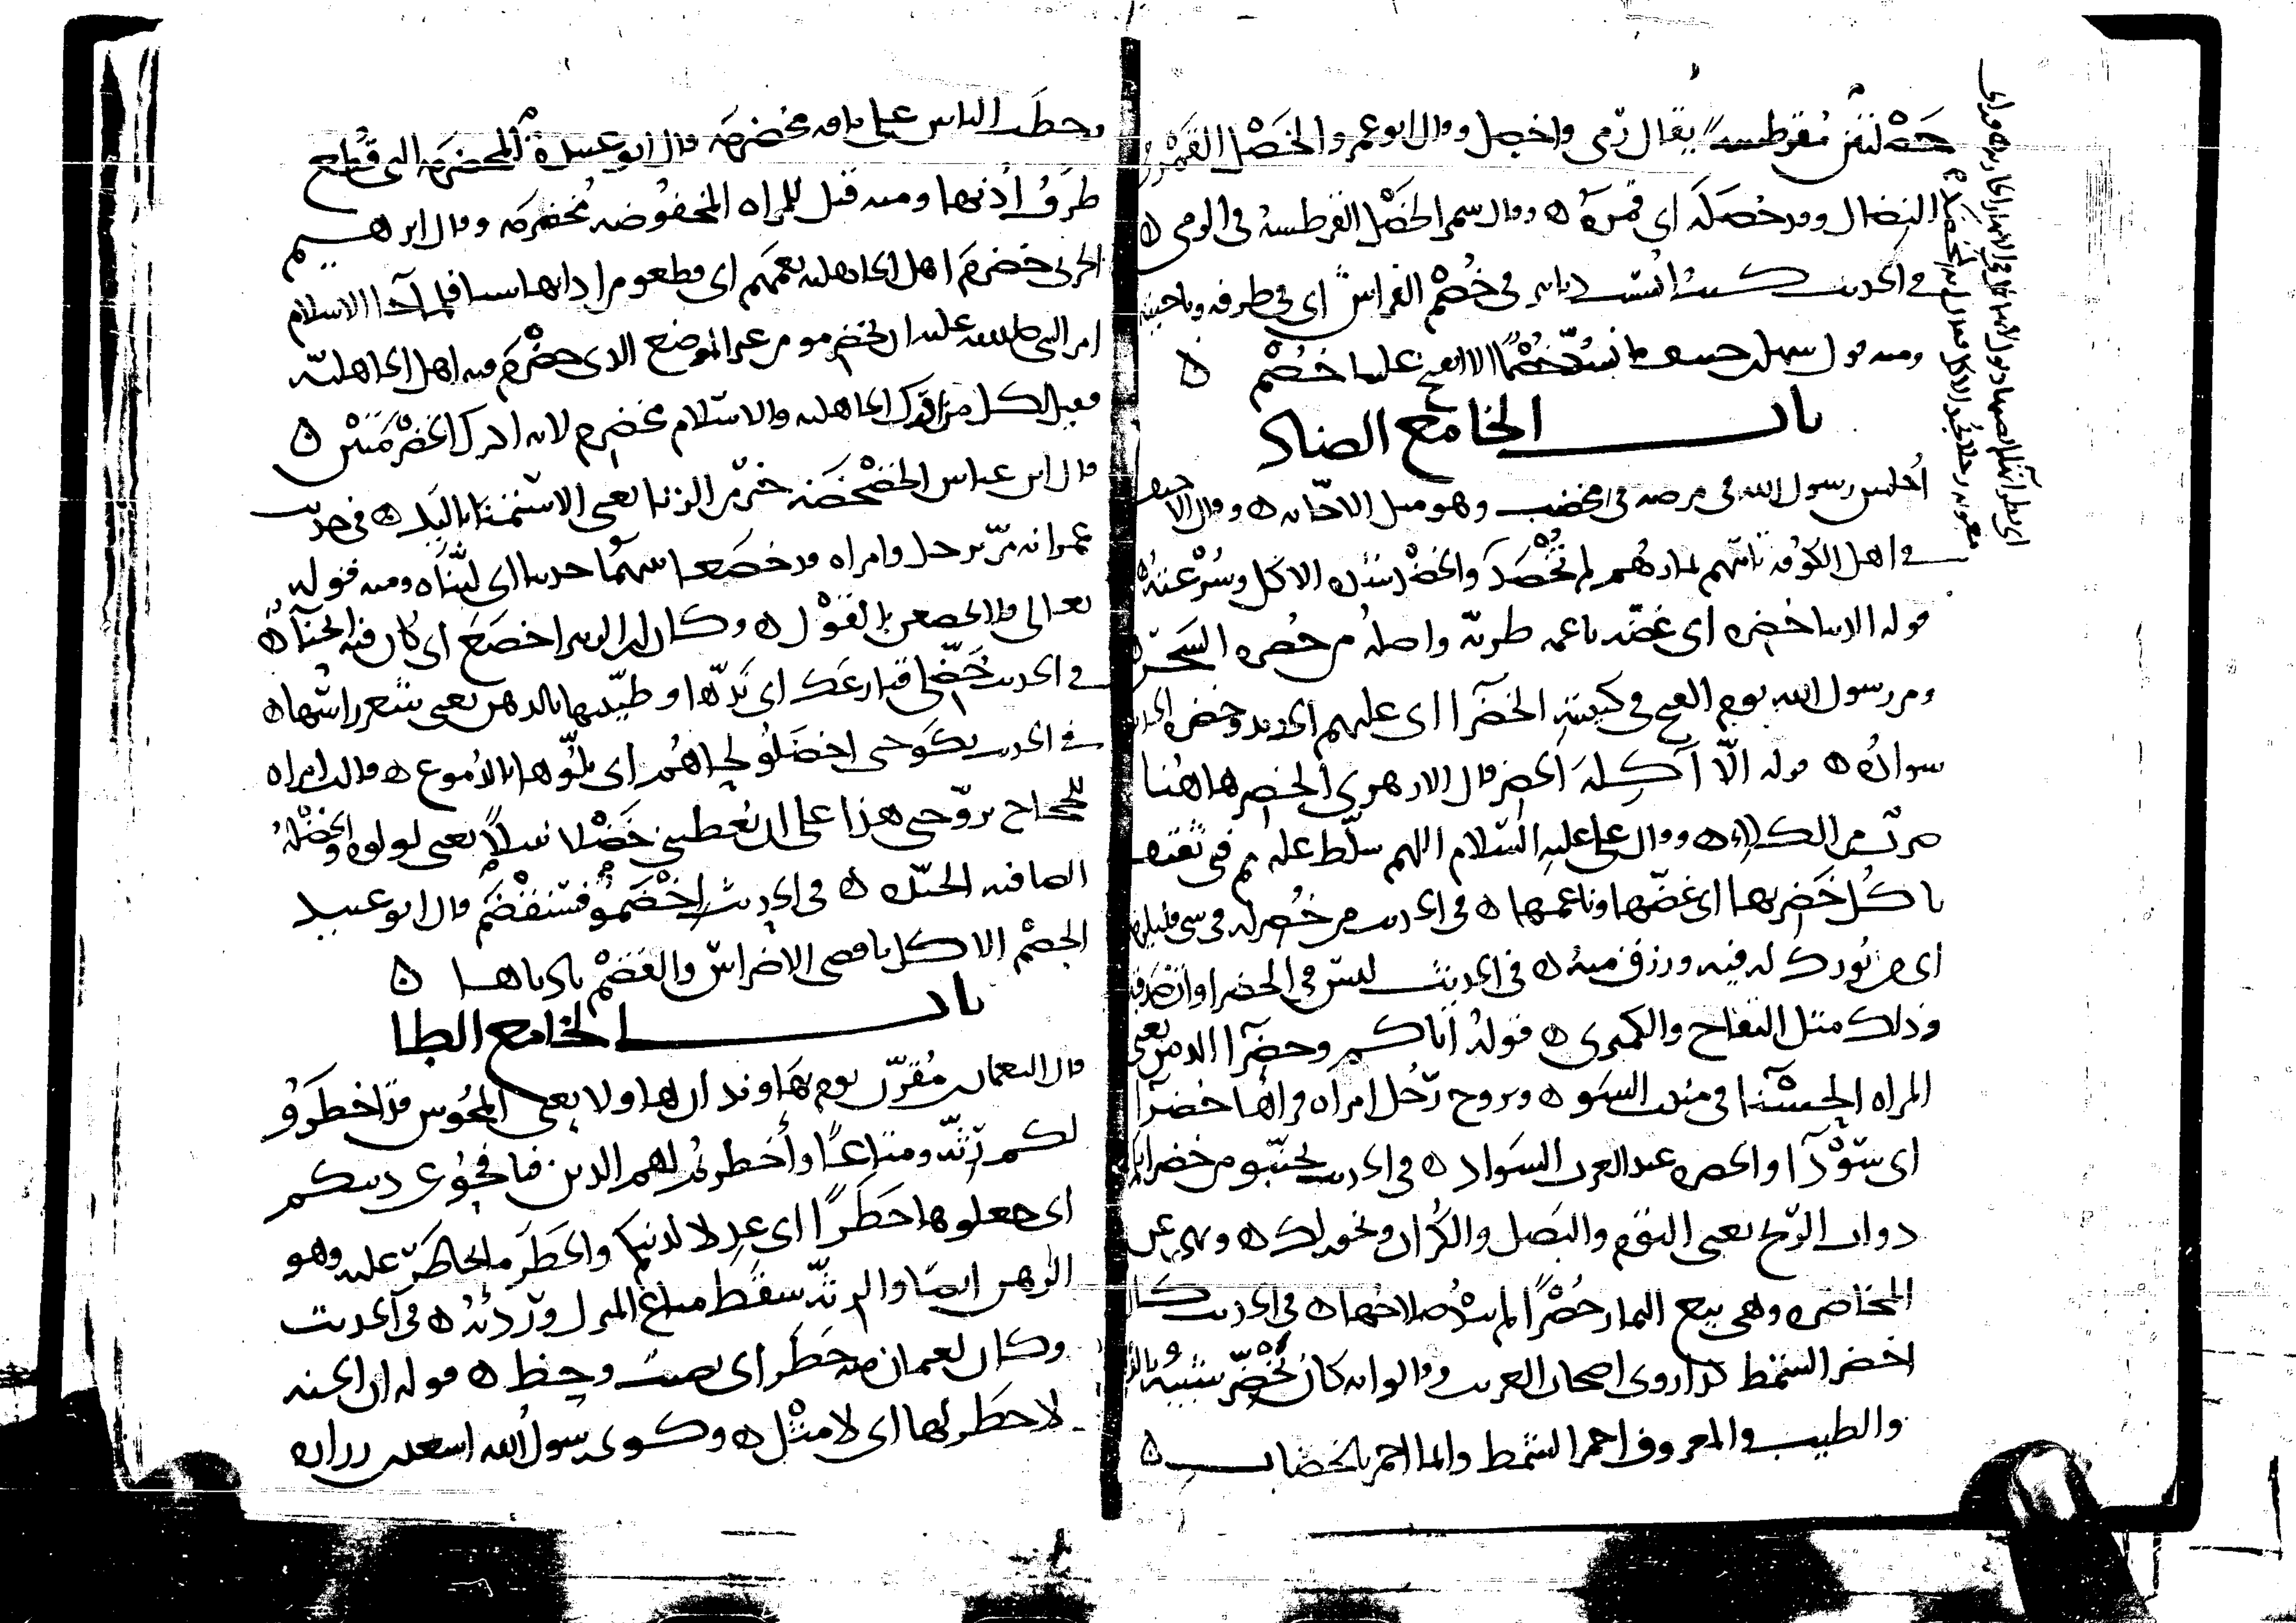 خصْلتَين مقرطسة يقال رمى واخصل وقال ابو عمر والخَصْل القَمْر في
النضال وقد خصَلَه اى قمَرَهُ ٥ وقال شمر الخَصْل القرطسة في الرمى ٥
في الحديث كنت أُنسيت دنانير في خُصْم الفراش اى في طرفه وناحيته
ومنه قول سهل بن حنيف ما نسُدّ خُصْمًا الا انفتح علينا خُصْم ٥
باب الخا مع الضاد
أُجلس رسول الله في مرضه في مخضب وهو مثل الاجّانه ٥ وقال الاحنف
في اهل الكوفة تاتيهم ثمارهُم لم تُخْضَد والخَضْد شدة الاكل وسُرْعتهُ ٥
قوله الدنيا خضِره اى غضّه ناعمه طريّه واصلهُ من خُضره الشجَر ٥
ومر رسول الله يوم الفتح في كتيبته الخضرآ اى عليهم الحديد وخضره الحديد
سوادُه ٥ قوله الّا آكِلَة الخضِر قال الازهرى الخضِر هاهُنا
ضربٌ من الكلاء ٥ وقال على عليه السّلام اللهم سلّط عليهم فتى ثقيف
ياكُل خَضِرتها اى غضّها وناعمها ٥ في الحديث من خُضر له في شى فليلزمه
اى من بُورك له فيه ورزق منهُ ٥ في الحديث ليس في الخضراوات صدقة
وذلك مثل التفاح والكمثرى ٥ قولهُ اياكم وخضرآ الدمن يعنى
المراه الحسْنآ في منبت السَو ٥ وتزوج رَجُل امراه فرآها خضرآ
اى سَوْدآ والخضره عند العرب السَواد ٥ في الحديث تجنّبو من خضرائكم
ذوات الرّيح يعنى الثوم والبَصل والكُرّاث ونحو ذلك ٥ ونهى عن
المخاضره وهى بيع الثمار خُضْرًا لم يبْدُ صلاحُها ٥ في الحديث كان
اخضر الشمَط كذا روى اصحاب الغريب وقالوا انه كان يُخْضِر شيْبُه بالدهن
والطيب والمعروف احمر الشمَط وانما احمر بالخضاب ٥
وخطَب الناس على ناقه مخضرمَه قال ابو عبيدة المخضرَمه التى قُطع
طرَفُ أُذنها ومنه قيل للمراه المخفُوضه مُخضرمَه وقال ابرهيم
الحربى خضرَم اهل الجاهليه نَعَمهم اى قطعو من اذانها شيا فلما جآ الاسلام
امر النبى صلى الله عليه ان يخضرمو من غير الموضع الذى خضرَم منه اهل الجاهليّه
فقيل لكل من ادرك الجاهليه والاسلام مخضرم لانه ادرك الخضْرمَتَيْن ٥
قال ابن عباس الخضْخضَه خيرٌ من الزنا يعنى الاستمْنآ باليَد ٥ في حديث
عمر انه مرّ برجل وامراه قد خضَعا بينهُما حديثا اى ليّنَاه ومنه قوله
تعالى فلا تخضعن بالقَوْل ٥ وكان الزبير اخضَعَ اى كان فيه انحنآ ٥
في الحديث خضّلى قنازعَك اى نَدّيها وطيّبيها بالدهن يعنى شعر راسها ٥
في الحديث بكَو حتى اخضَلُو لحاهُم اى بلُّوها بالدُموع ٥ قالت امراه
للحجاج تزوّجنى هذا على ان يُعطينى خَضْلا نبيلاً يعنى لولوا والخَضْلةُ
الصافيه الجيّده ٥ في الحديث اخْضَمُو فسنقْضَم قال ابو عبيد
الخضْم الاكل باقصى الاضراس والقضْم بادناها ٥
باب الخا مع الطا
قال النعمان بن مُقرّن يوم نهاوند ان هاولا يعنى المجُوس قد اخطَرو
لكم رِثّه ومتاعًا وأخطرتُم لهم الدين فنافحُو عن دينكم
اى جعلوها خطَرًا اى عِدلا لدينكم والخطَر ما يخاطَر عليه وهو
الرهن ايضا والرِثّه سقَط متاع المنزل وردِئُه ٥ في الحديث
وكان لعثمان منه خطَر اى نصيب وحظ ٥ قوله ان الجنه
لا خطَر لها اى لا مِثْل ٥ وكوى رسولُ الله اسعد بن زراره